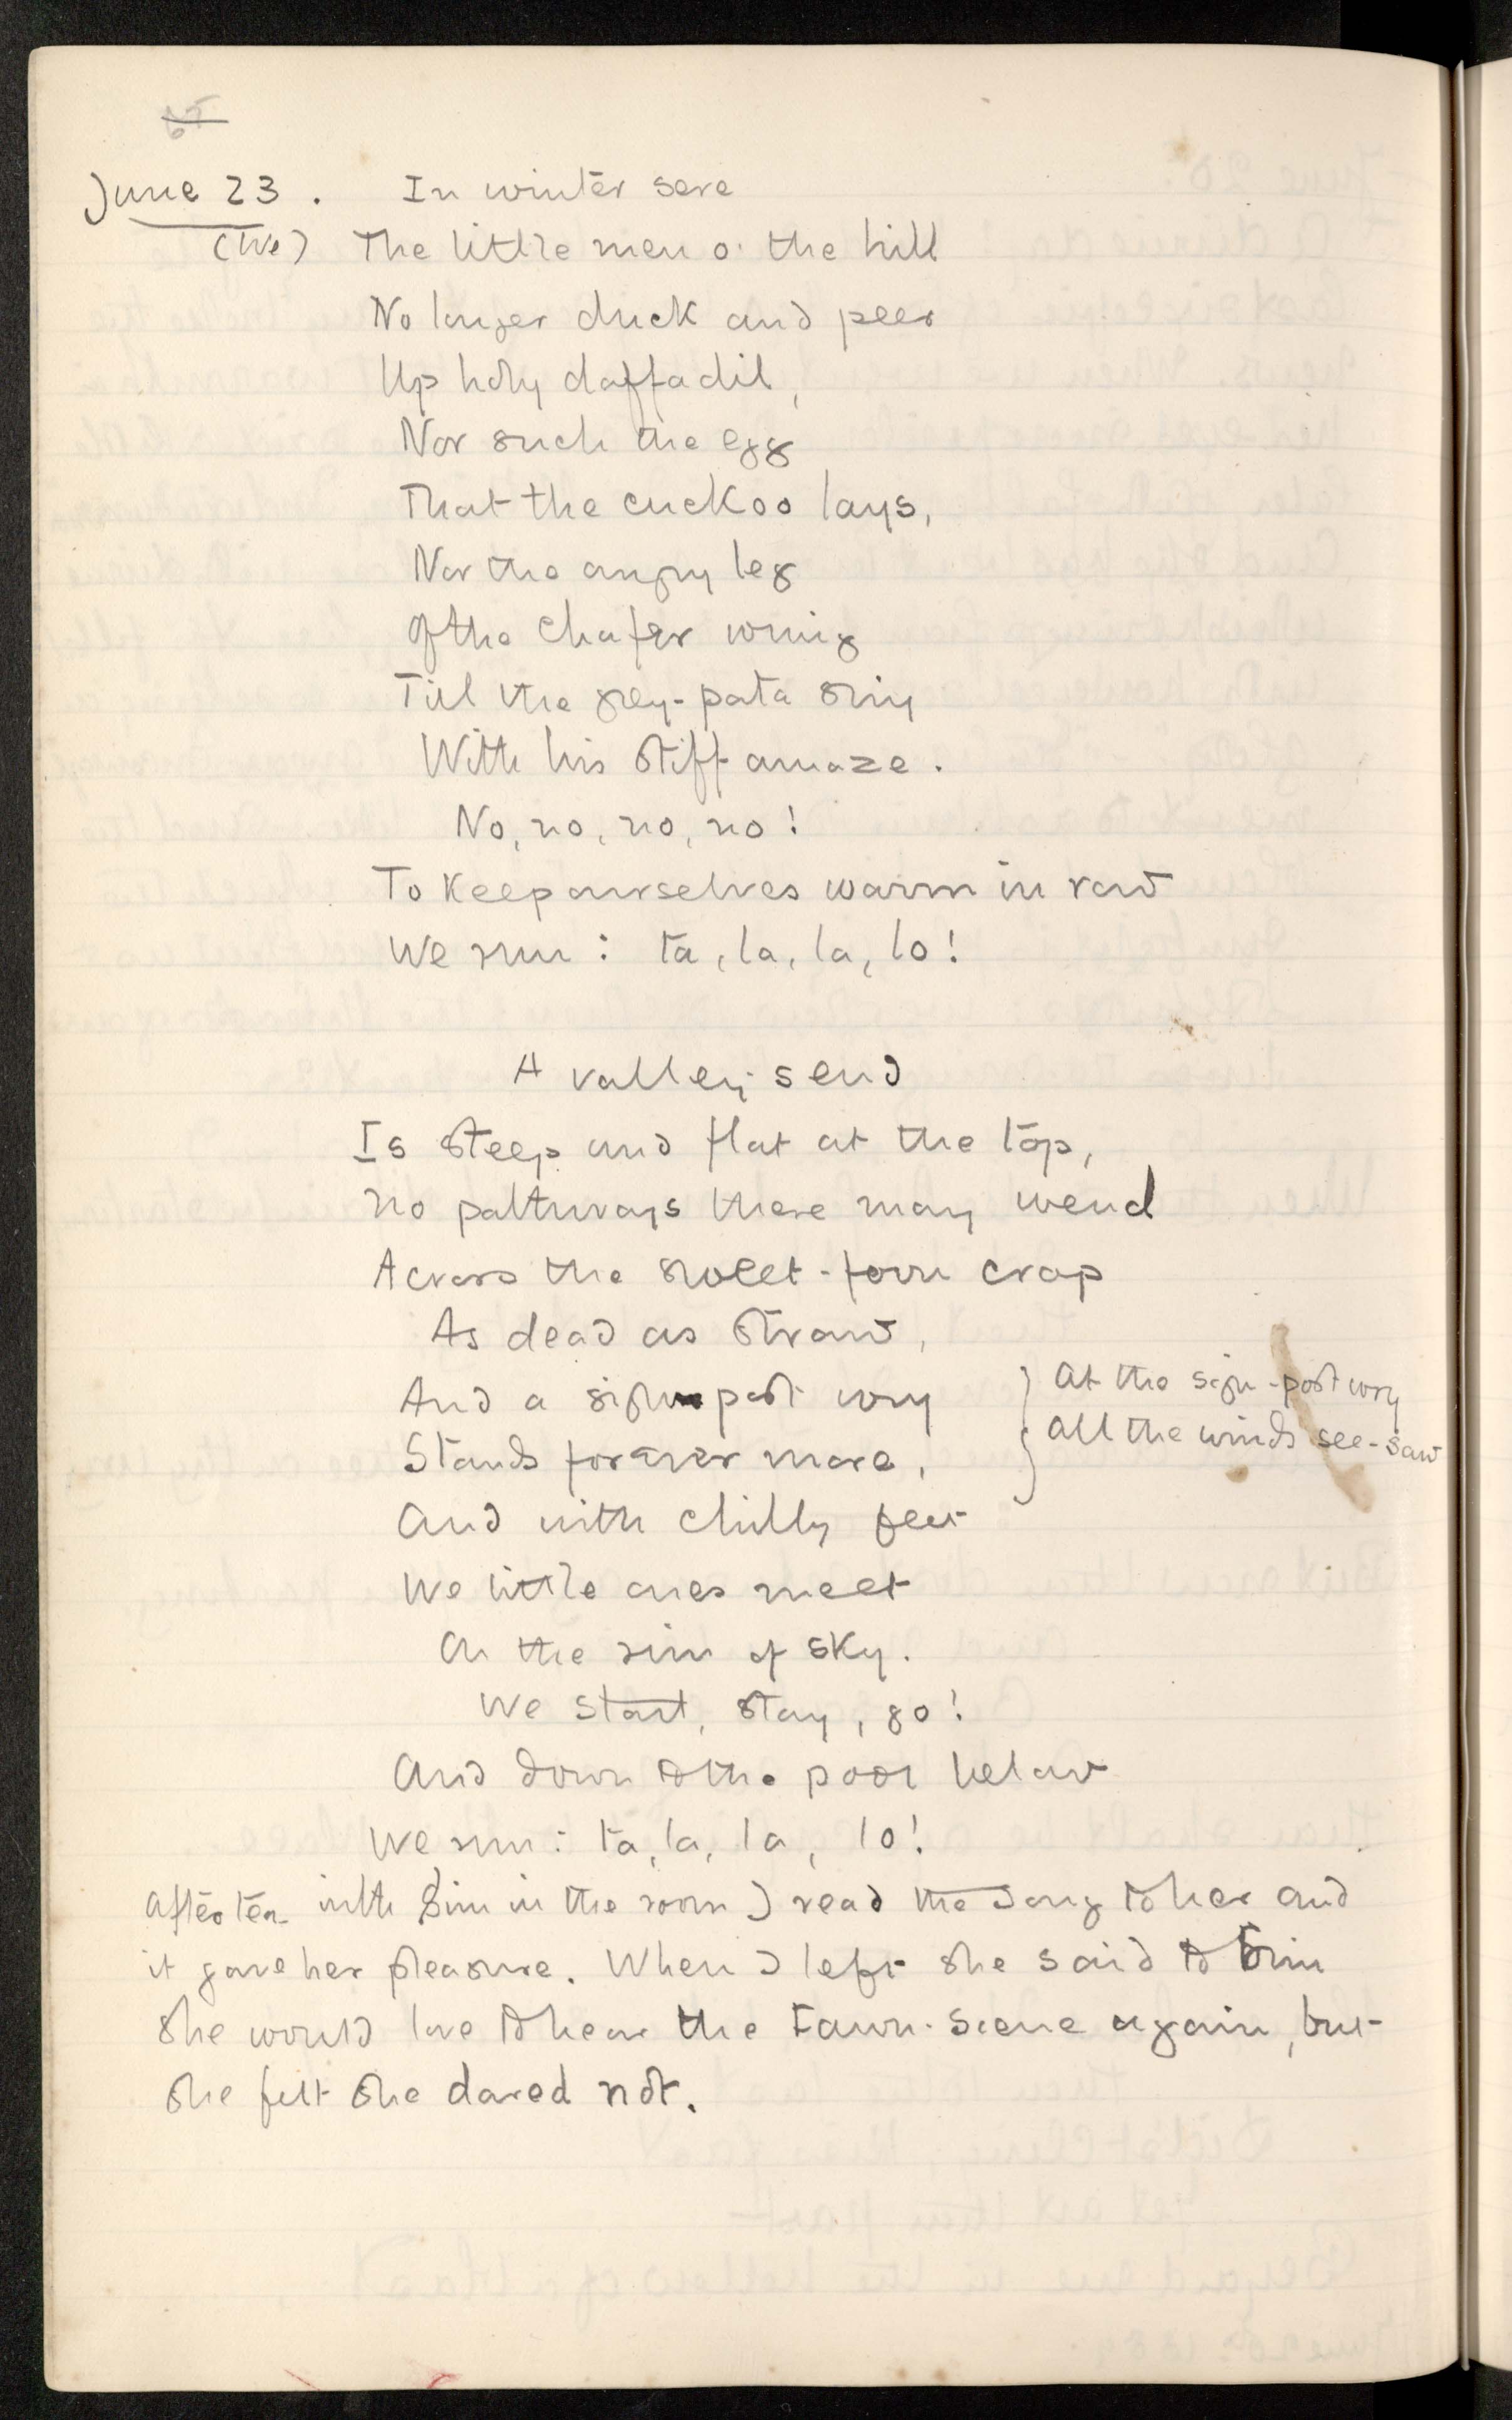 65
June 23. In winter sere
(We) The little men o' the hill
No longer duck and peer
Up holy daffadil,
Nor suck the egg
That the cuckoo lays,
Nor the angry leg
Of the chafer wring
Till the grey-pate sing
With his stiff amaze.
No, no, no, no!
To keep ourselves warm in row
We run: ta, la, la, lo!
A valley's end
Is steep and flat at the top,
No pathways there may wend
Across the sweet-fern crop
As dead as straw,
And a sign post wry
Stands forever more,
} At the sign-post wry
All the winds see-saw
And with chilly feet
We little ones meet
On the rim of sky.
We start, stay, go!
And down to the pool below
We run: ta, la, la, lo!
After tea with Sim in the room I read the song to her and
it gave her pleasure. When I left she said to Sim
she would love to hear the Fawn-Scene again, but
she felt she dared not.